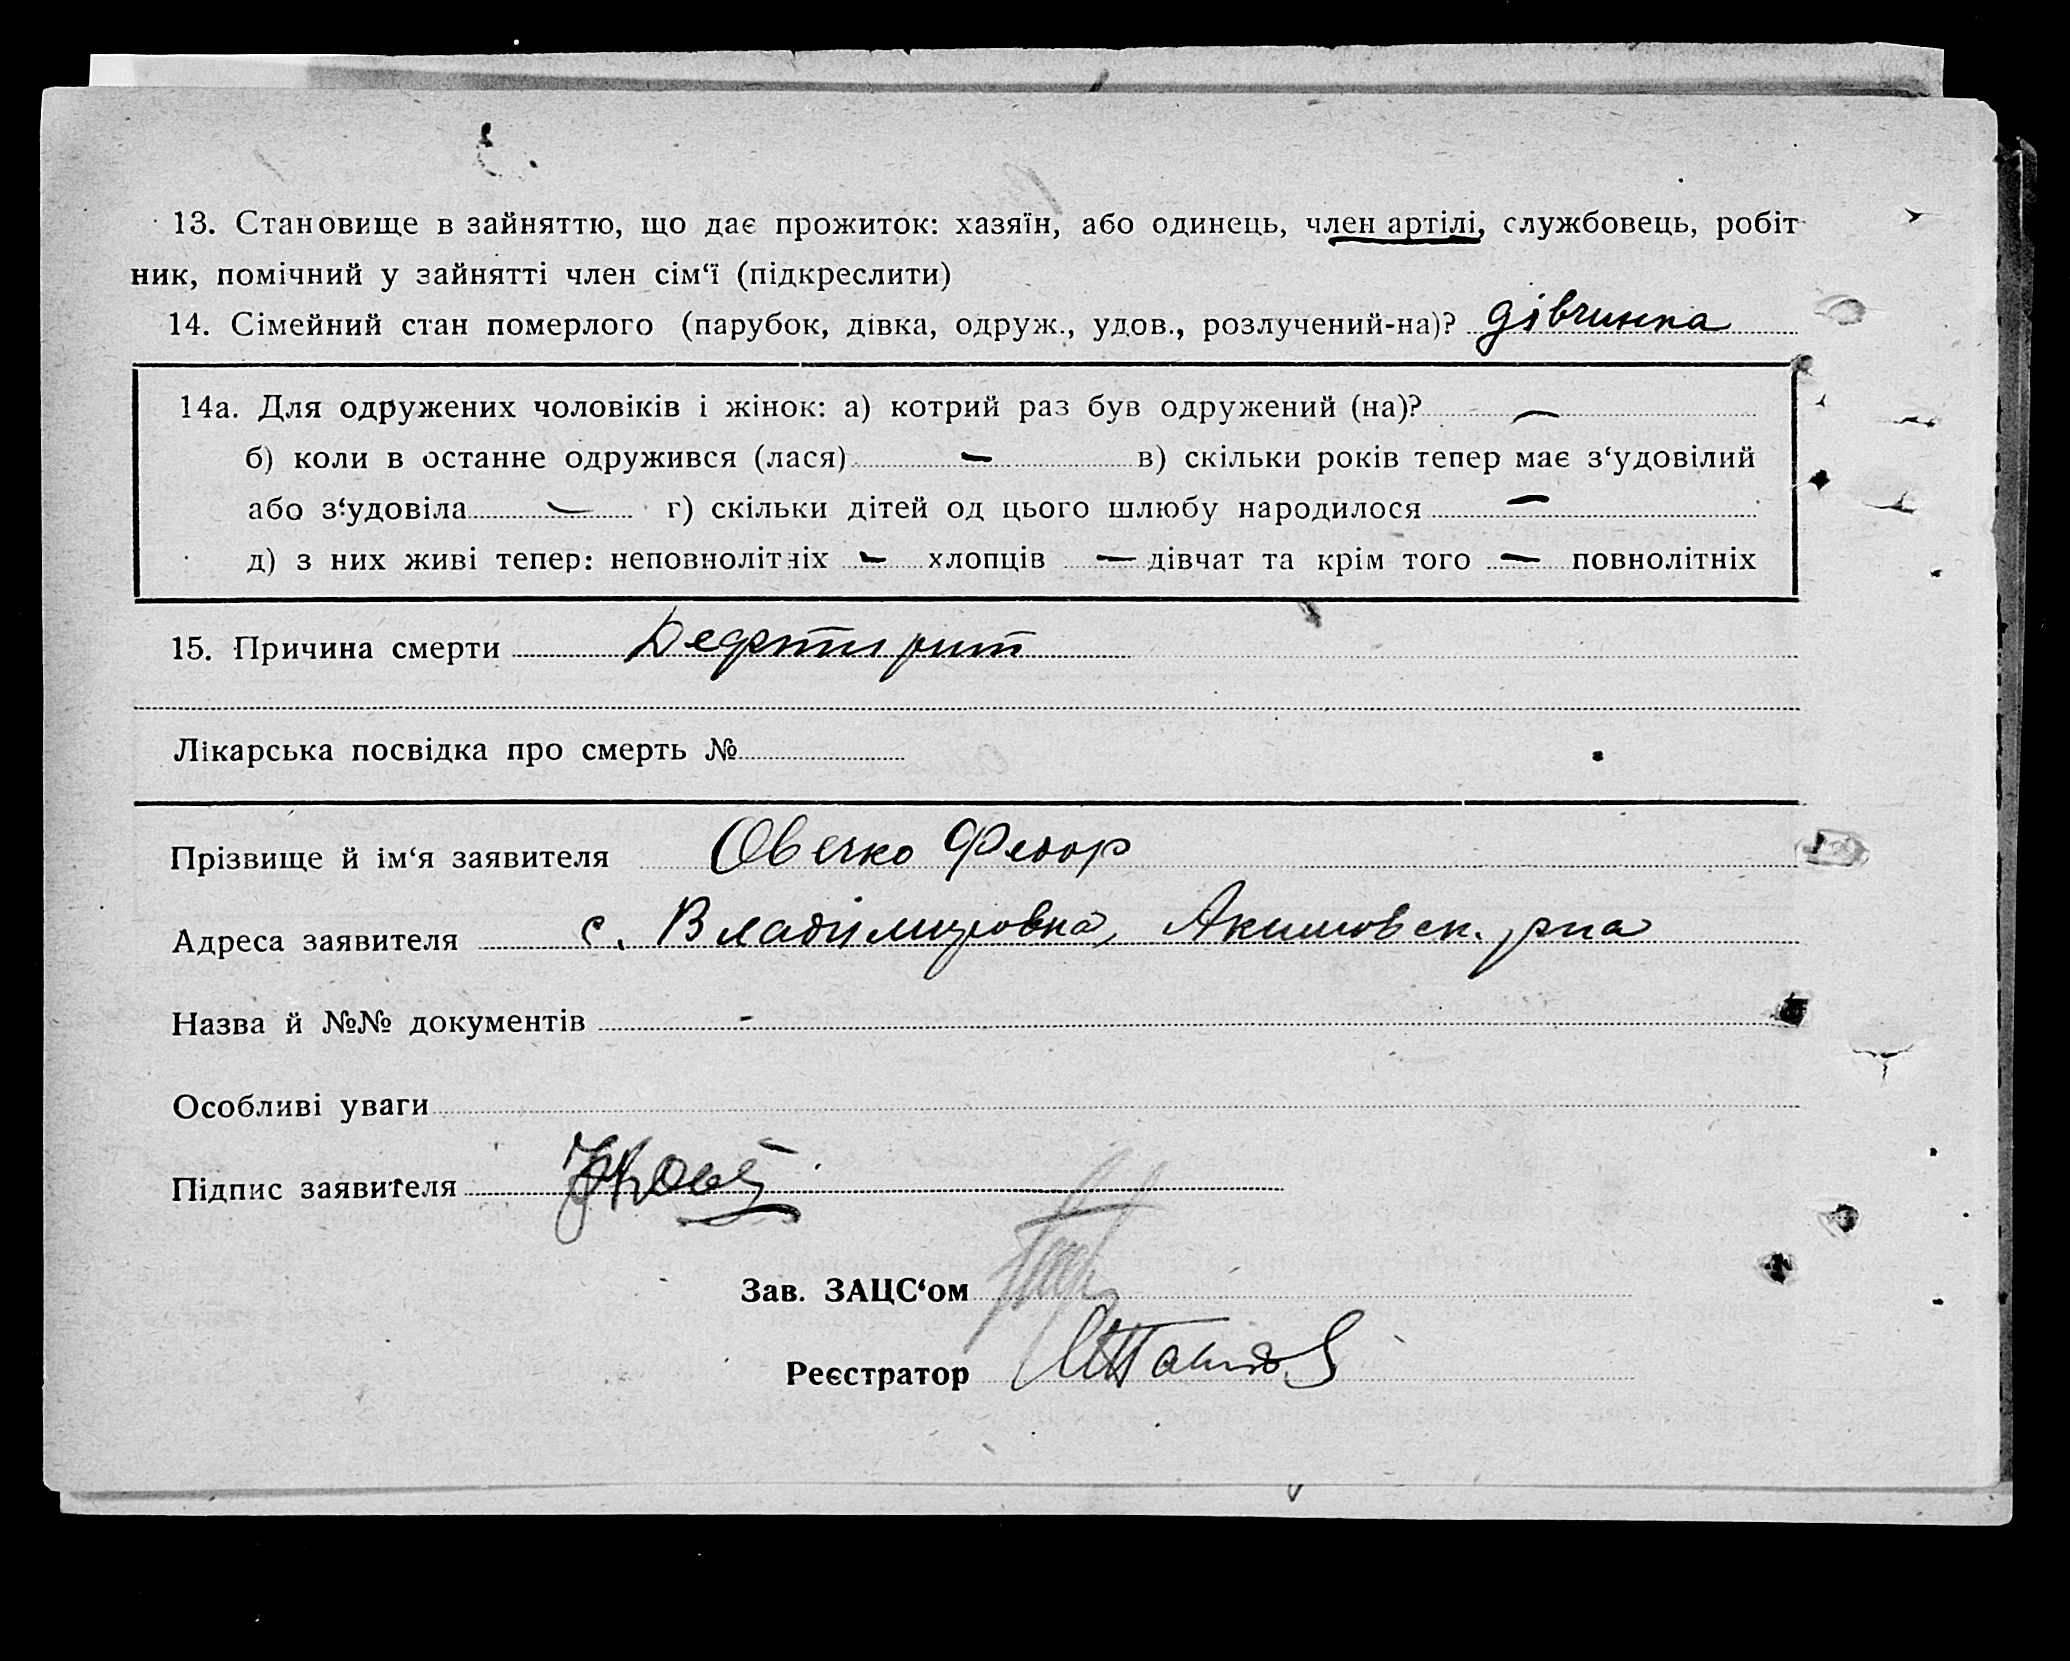 13. Становище в зайняттю, що дає прожиток: хазяїн, або одинець, член артілі, службовець, робіт-
ник, помічний у зайнятті член сім‘ї (підкреслити)
14. Сімейний стан померлого (парубок, дівка, одруж., удов., розлучений-на)? дівчинка
14а. Для одружених чоловіків і жінок: а) котрий раз був одружений (на)? —
б) коли в останнє одружився (лася) — в) скільки років тепер має з‘удовілий
або з‘удовіла — г) скільки дітей од цього шлюбу народилося —
д) з них живі тепер: неповнолітніх — хлопців — дівчат та крім того — повнолітніх
15. Причина смерти Дефтирит
Лікарська посвідка про смерть №
Прізвище й ім‘я заявителя Овечко Федор
Адреса заявителя с. Владимировка, Акимовск. рна
Назва й №№ документів -
Особливі уваги
Підпис заявителя
Зав. ЗАЦС‘ом
Реєстратор